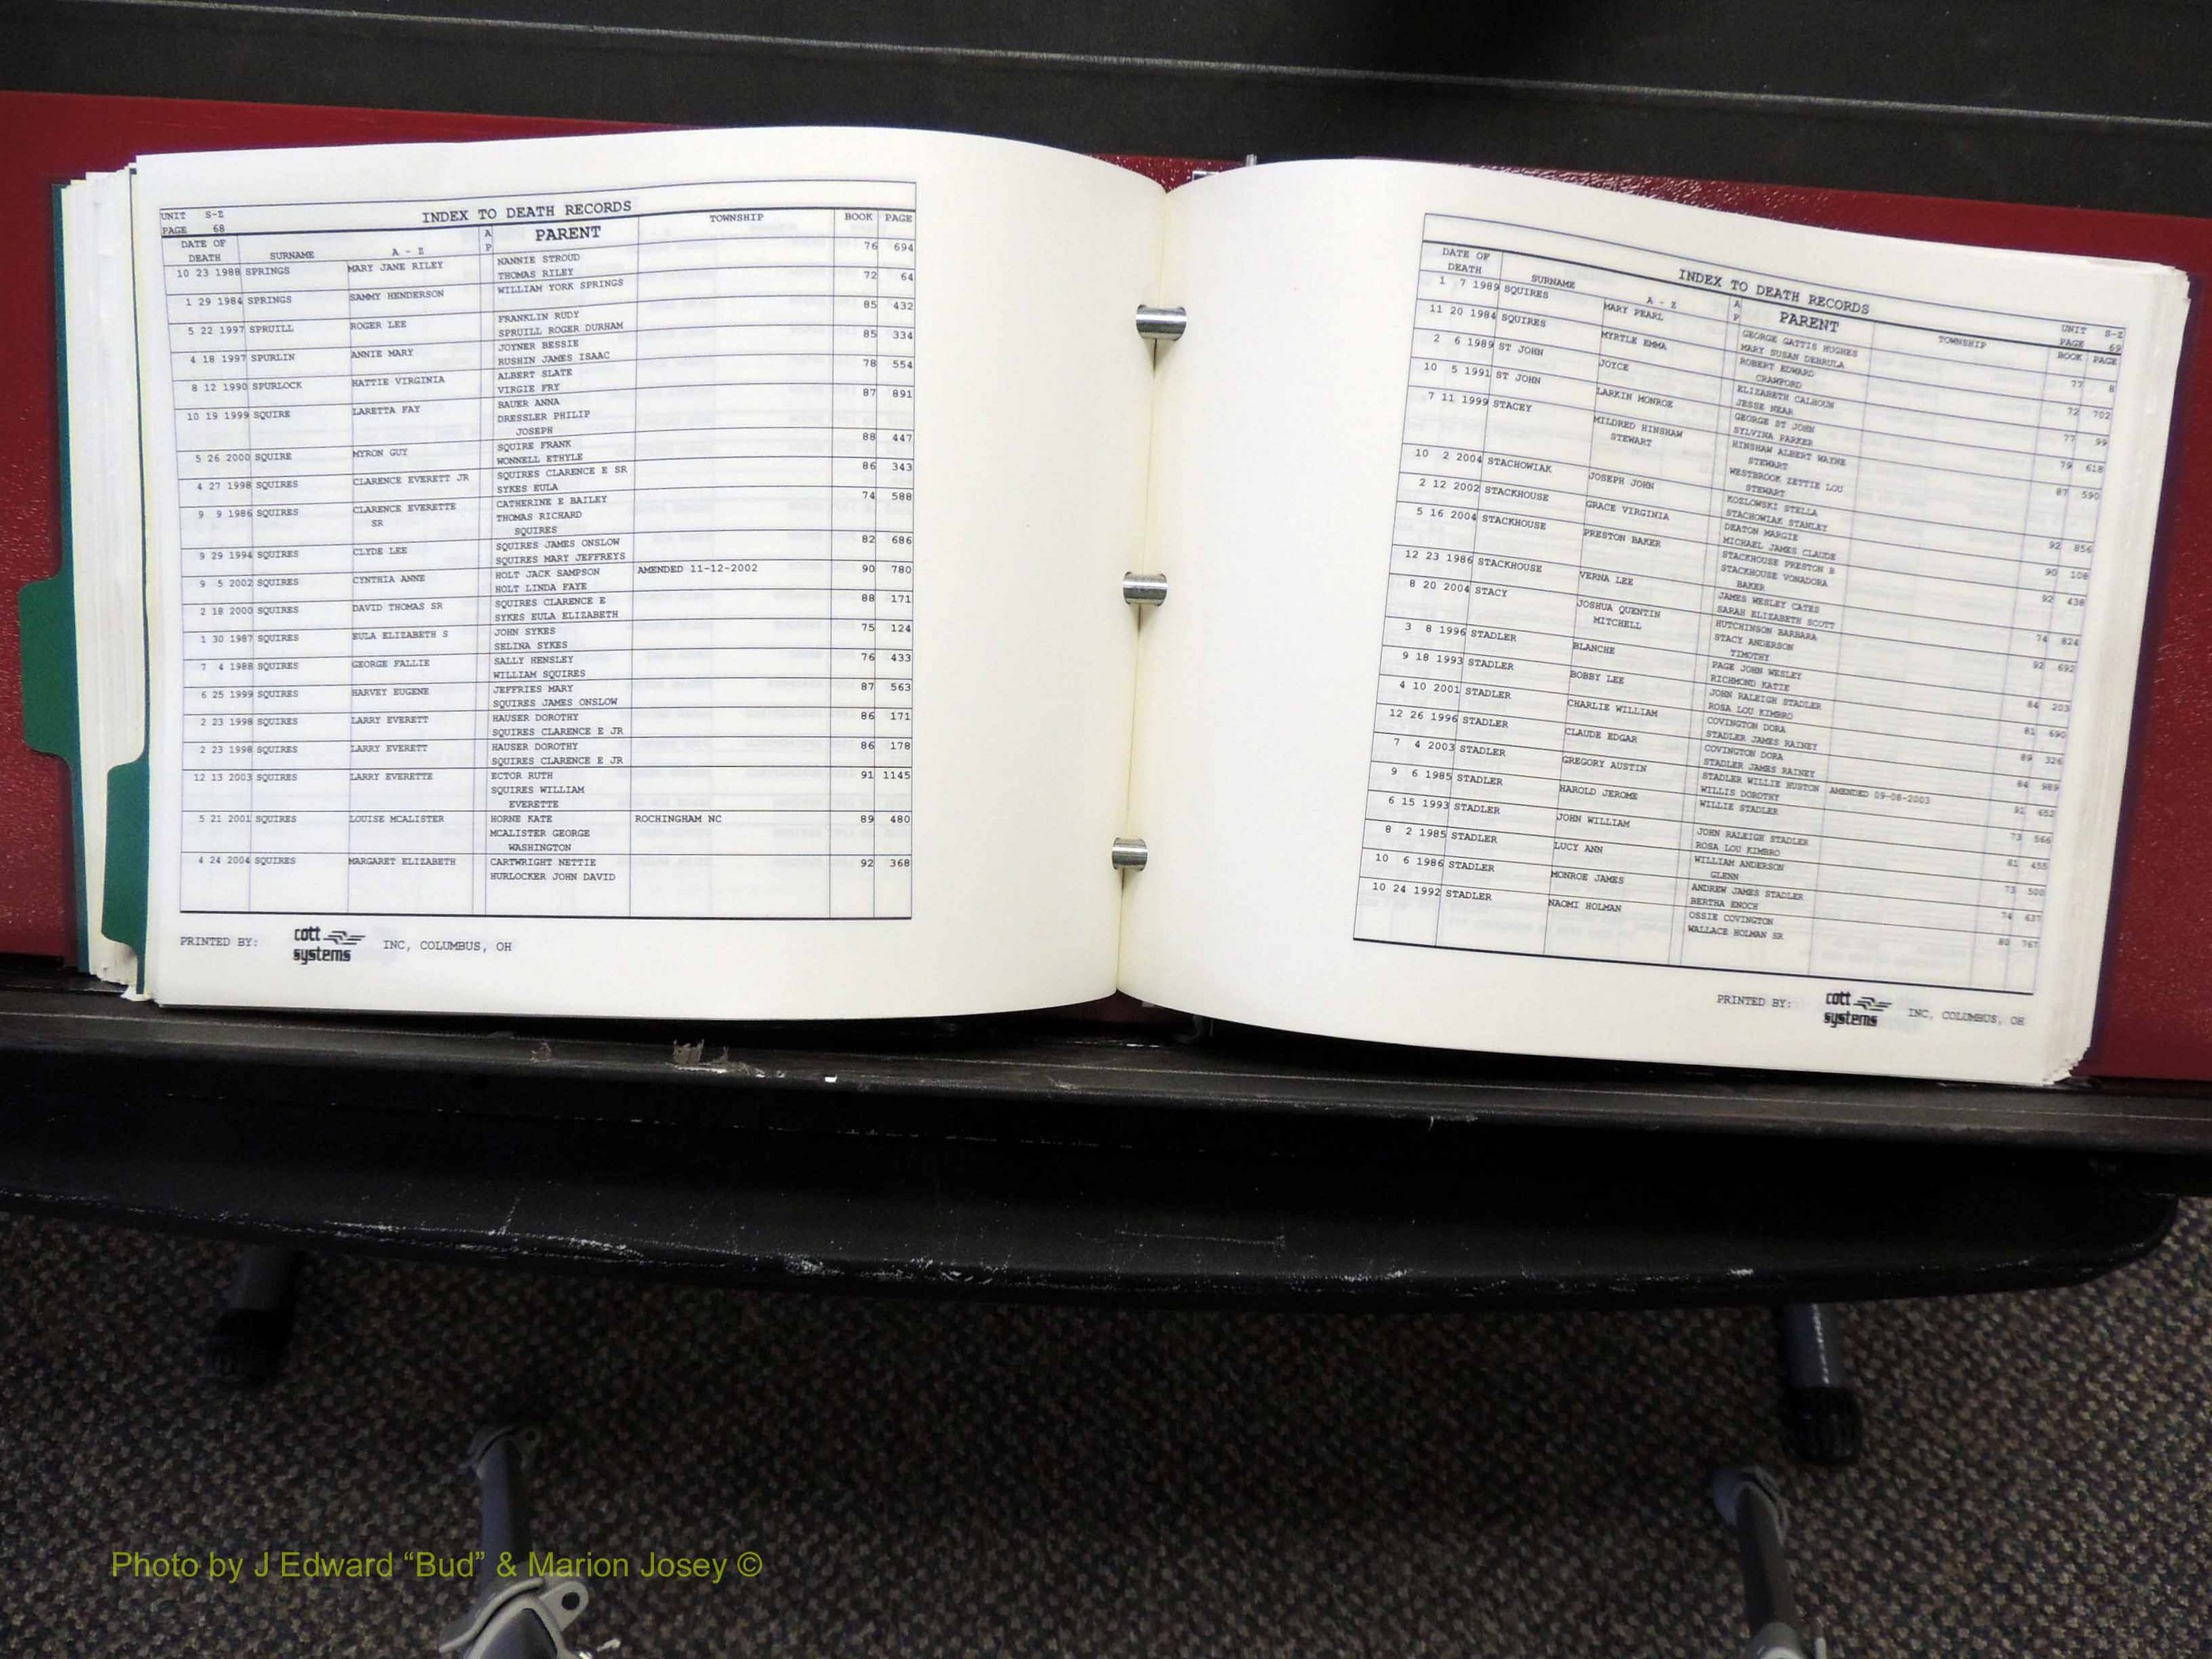 UNIT S-Z
PAGE 68
INDEX TO DEATH RECORDS
DATE OF DEATH SURNAME A - Z AP PARENT TOWNSHIP BOOK PAGE
10 23 1988 SPRINGS MARY JANE RILEY NANNIE STROUD 76 694
THOMAS RILEY
1 29 1984 SPRINGS SAMMY HENDERSON WILLIAM YORK SPRINGS 72 64
5 22 1997 SPRUILL ROGER LEE FRANKLIN RUDY 85 432
SPRUILL ROGER DURHAM
4 18 1997 SPURLIN ANNIE MARY JOYNER BESSIE 85 334
RUSHIN JAMES ISAAC
8 12 1990 SPURLOCK HATTIE VIRGINIA ALBERT SLATE 78 554
VIRGIE FRY
10 19 1999 SQUIRE LARETTA FAY BAUER ANNA 87 891
DRESSLER PHILIP
JOSEPH
5 26 2000 SQUIRE MYRON GUY SQUIRE FRANK 88 447
WONNELL ETHYLE
4 27 1998 SQUIRES CLARENCE EVERETT JR SQUIRES CLARENCE E SR 86 343
SYKES EULA
9 9 1986 SQUIRES CLARENCE EVERETTE CATHERINE E BAILEY 74 588
SR THOMAS RICHARD
SQUIRES
9 29 1994 SQUIRES CLYDE LEE SQUIRES JAMES ONSLOW 82 686
SQUIRES MARY JEFFREYS
9 5 2002 SQUIRES CYNTHIA ANNE HOLT JACK SAMPSON AMENDED 11-12-2002 90 780
HOLT LINDA FAYE
2 18 2000 SQUIRES DAVID THOMAS SR SQUIRES CLARENCE E 88 171
SYKES EULA ELIZABETH
1 30 1987 SQUIRES EULA ELIZABETH S JOHN SYKES 75 124
SELINA SYKES
7 4 1988 SQUIRES GEORGE FALLIE SALLY HENSLEY 76 433
WILLIAM SQUIRES
6 25 1999 SQUIRES HARVEY EUGENE JEFFRIES MARY 87 563
SQUIRES JAMES ONSLOW
2 23 1998 SQUIRES LARRY EVERETT HAUSER DOROTHY 86 171
SQUIRES CLARENCE E JR
2 23 1998 SQUIRES LARRY EVERETT HAUSER DOROTHY 86 178
SQUIRES CLARENCE E JR
12 13 2003 SQUIRES LARRY EVERETTE ECTOR RUTH 91 1145
SQUIRES WILLIAM
EVERETTE
5 21 2001 SQUIRES LOUISE MCALISTER HORNE KATE ROCHINGHAM NC 89 480
MCALISTER GEORGE
WASHINGTON
4 24 2004 SQUIRES MARGARET ELIZABETH CARTWRIGHT NETTIE 92 368
HURLOCKER JOHN DAVID
PRINTED BY: cott systems INC, COLUMBUS, OH
INDEX TO DEATH RECORDS
UNIT S-Z
PAGE 69
DATE OF DEATH SURNAME A - Z AP PARENT TOWNSHIP BOOK PAGE
1 7 1989 SQUIRES MARY PEARL GEORGE GATTIS HUGHES 77 8
MARY SUSAN DEBRULA
11 20 1984 SQUIRES MYRTLE EMMA ROBERT EDWARD 72 702
CRAWFORD
2 6 1989 ST JOHN JOYCE ELIZABETH CALHOUN 77 99
JESSE NEAR
10 5 1991 ST JOHN LARKIN MONROE GEORGE ST JOHN 79 618
SYLVINA PARKER
7 11 1999 STACEY MILDRED HINSHAW HINSHAW ALBERT WAYNE 87 590
STEWART STEWART
WESTBROOK ZETTIE LOU
STEWART
10 2 2004 STACHOWIAK JOSEPH JOHN KOZLOWSKI STELLA 92 856
STACHOWIAK STANLEY
2 12 2002 STACKHOUSE GRACE VIRGINIA DEATON MARGIE 90 108
MICHAEL JAMES CLAUDE
5 16 2004 STACKHOUSE PRESTON BAKER STACKHOUSE PRESTON B 92 438
STACKHOUSE VONADORA
BAKER
12 23 1986 STACKHOUSE VERNA LEE JAMES WESLEY CATES 74 824
SARAH ELIZABETH SCOTT
8 20 2004 STACY JOSHUA QUENTIN HUTCHINSON BARBARA 92 692
MITCHELL STACY ANDERSON
TIMOTHY
3 8 1996 STADLER BLANCHE PAGE JOHN WESLEY 84 203
RICHMOND KATIE
9 18 1993 STADLER BOBBY LEE JOHN RALEIGH STADLER 81 690
ROSA LOU KIMBRO
4 10 2001 STADLER CHARLIE WILLIAM COVINGTON DORA 89 326
STADLER JAMES RAINEY
12 26 1996 STADLER CLAUDE EDGAR COVINGTON DORA 84 989
STADLER JAMES RAINEY
7 4 2003 STADLER GREGORY AUSTIN STADLER WILLIE HUSTON AMENDED 09-08-2003 91 652
WILLIS DOROTHY
9 6 1985 STADLER HAROLD JEROME WILLIE STADLER 73 566
6 15 1993 STADLER JOHN WILLIAM JOHN RALEIGH STADLER 81 455
ROSA LOU KIMBRO
8 2 1985 STADLER LUCY ANN WILLIAM ANDERSON 73 500
GLENN
10 6 1986 STADLER MONROE JAMES ANDREW JAMES STADLER 74 637
BERTHA ENOCH
10 24 1992 STADLER NAOMI HOLMAN OSSIE COVINGTON 80 767
WALLACE HOLMAN SR
PRINTED BY: cott systems INC, COLUMBUS, OH
Photo by J Edward “Bud” & Marion Josey ©